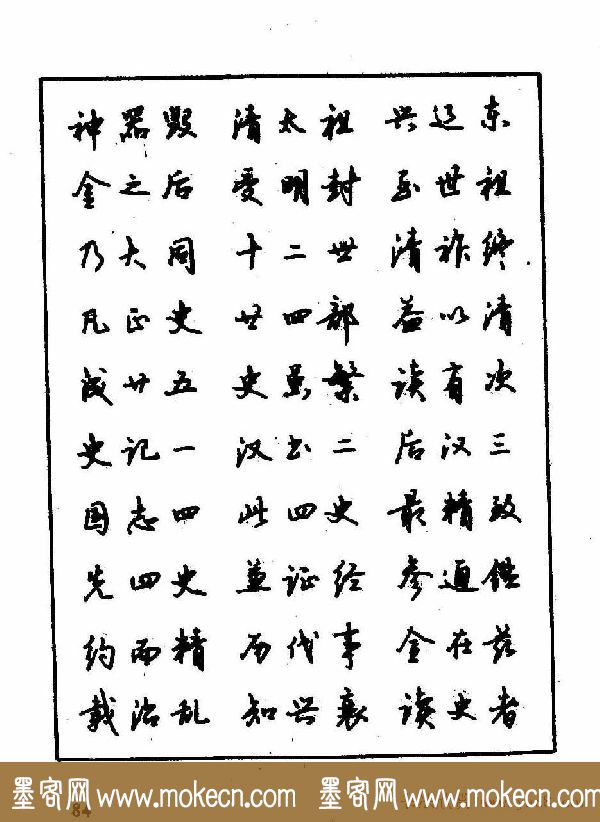 神器毁 清太祖 兴辽东
金之后 受明封 至世祖
乃大同 十二世 清祚终
凡正史 廿四部 益以清
成廿五 史虽繁 读有次
史记一 汉书二 后汉三
国志四 此四史 最精致
先四史 兼证经 参通鉴
约而精 历代事 全在兹
载治乱 知兴衰 读史者
墨客网 www.mokecn.com 墨客网 www.mokecn.com
84